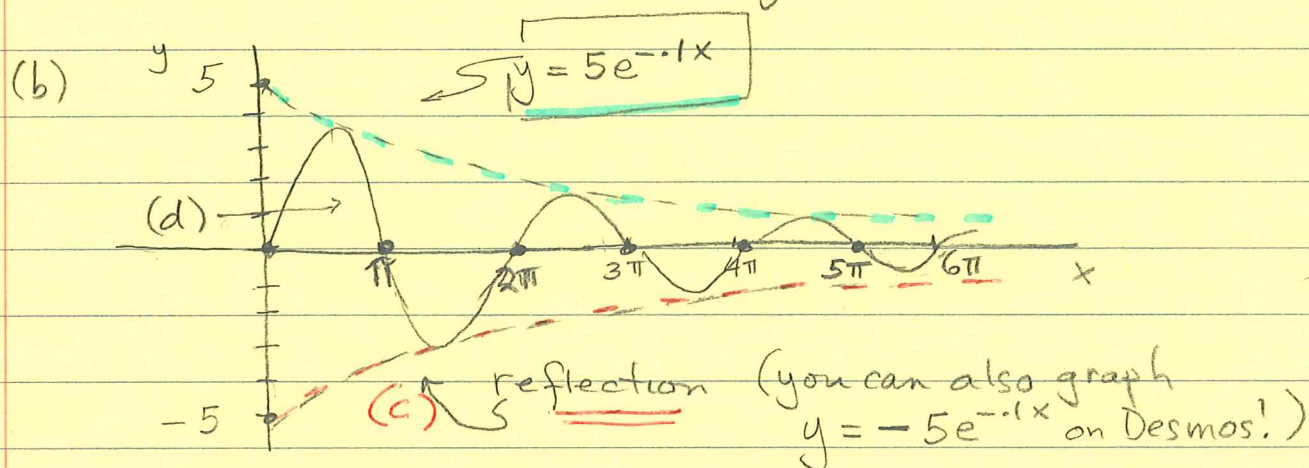 y = 5e^{-.1x}
(b)
y
5
(d)
π 2π 3π 4π 5π 6π
x
-5
(c)
reflection (you can also graph
y = -5e^{-.1x} on Desmos!)